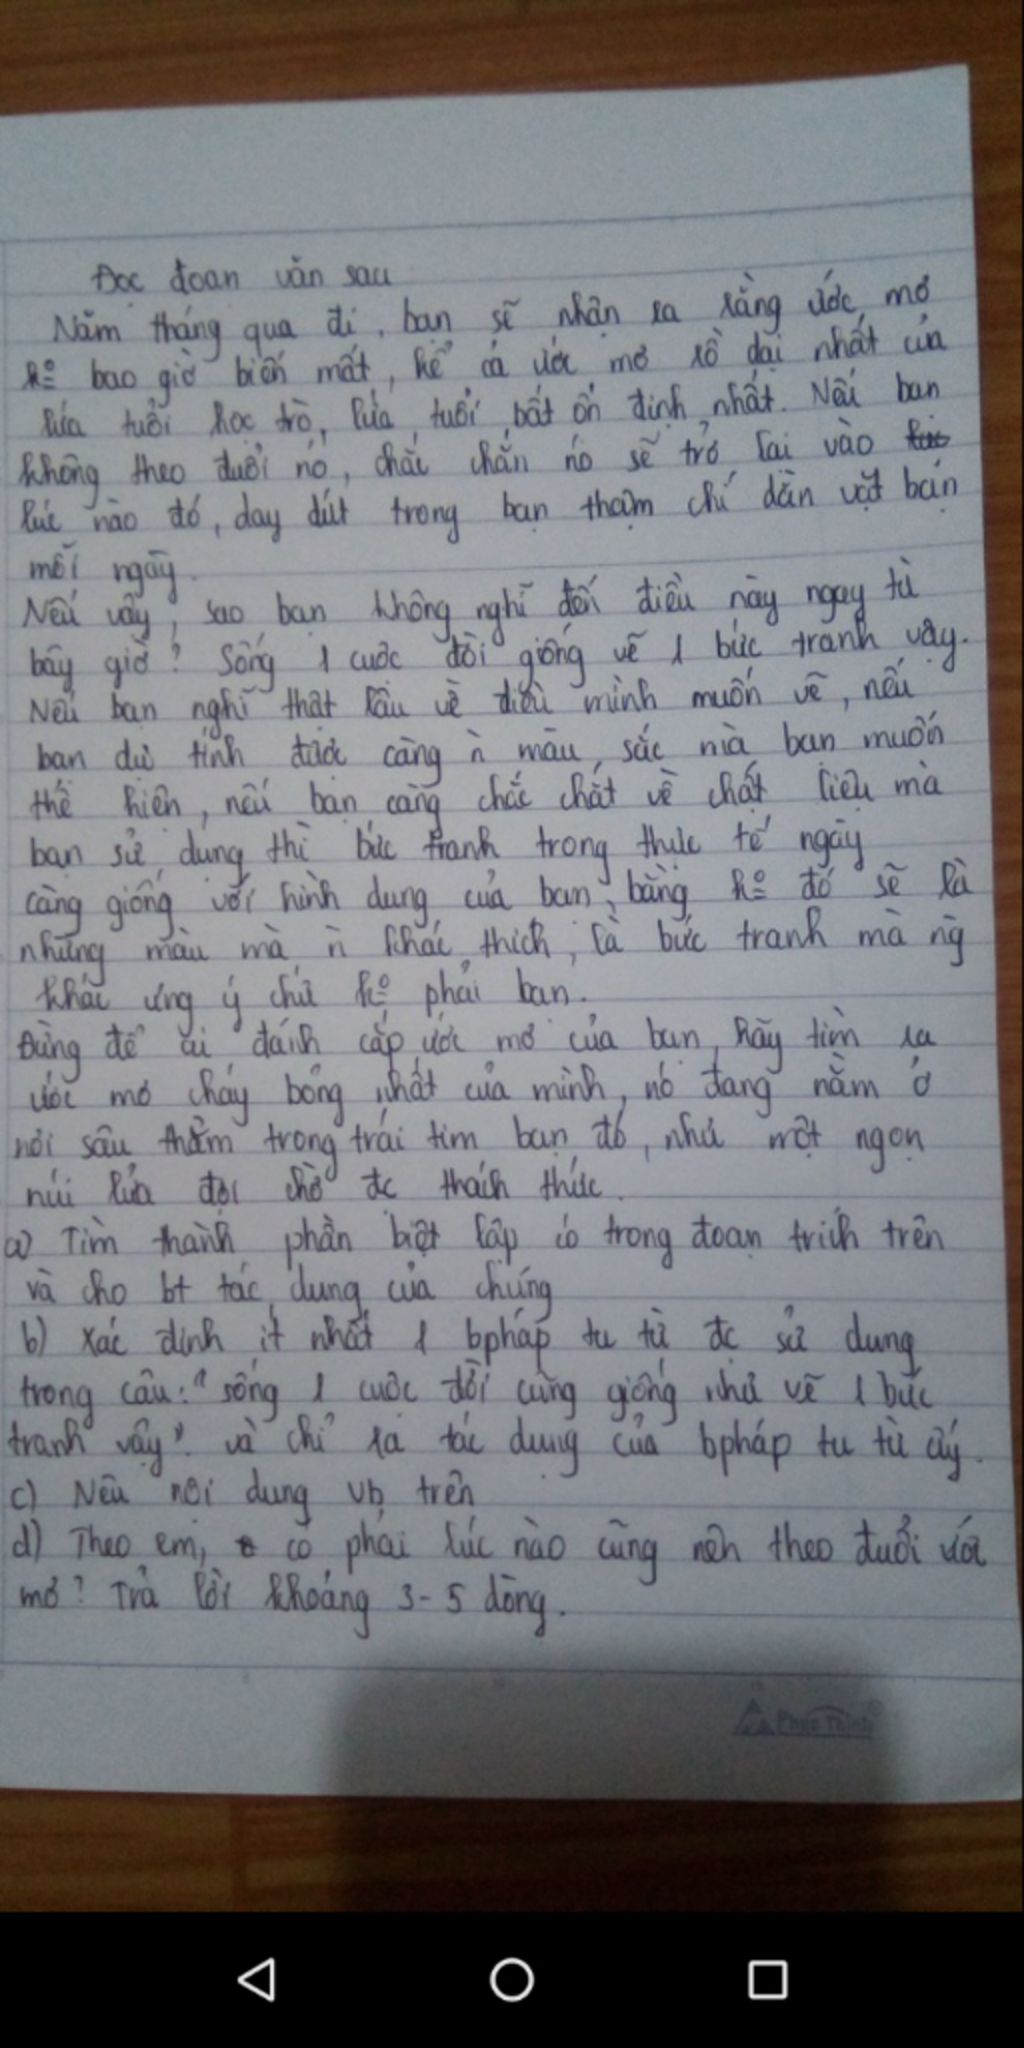 Đọc đoạn văn sau
Năm tháng qua đi, bạn sẽ nhận ra rằng ước mơ
ko bao giờ biến mất, kể cả ước mơ rồ dại nhất của
lứa tuổi học trò, lứa tuổi bất ổn định nhất. Nếu bạn
không theo đuổi nó, chắc chắn nó sẽ trở lại vào
lúc nào đó, day dứt trong bạn thậm chí dằn vặt bạn
mỗi ngày.
Nếu vậy, sao bạn không nghĩ đến điều này ngay từ
bây giờ? Sống 1 cuộc đời giống vẽ 1 bức tranh vậy.
Nếu bạn nghĩ thật lâu về điều mình muốn vẽ, nếu
bạn dự tính được càng n màu sắc mà bạn muốn
thể hiện, nếu bạn càng chắc chắt về chất liệu mà
bạn sử dụng thì bức tranh trong thực tế ngày
càng giống với hình dung của bạn, bằng ko đó sẽ là
những màu mà n khác thích, là bức tranh mà ng
khác ưng ý chứ ko phải bạn.
Đừng để ai đánh cắp ước mơ của bạn, hãy tìm ra
ước mơ cháy bỏng nhất của mình, nó đang nằm ở
nơi sâu thẳm trong trái tim bạn đó, như một ngọn
núi lửa đợi chờ đc thách thức.
a) Tìm thành phần biệt lập có trong đoạn trích trên
và cho bt tác dụng của chúng
b) Xác định ít nhất 1 bpháp tu từ đc sử dụng
trong câu: "sống 1 cuộc đời cũng giống như vẽ 1 bức
tranh vậy". và chỉ ra tác dụng của bpháp tu từ ấy.
c) Nêu nội dung vb trên
d) Theo em, có phải lúc nào cũng nên theo đuổi ước
mơ? Trả lời khoảng 3-5 dòng.
Phúc Thịnh